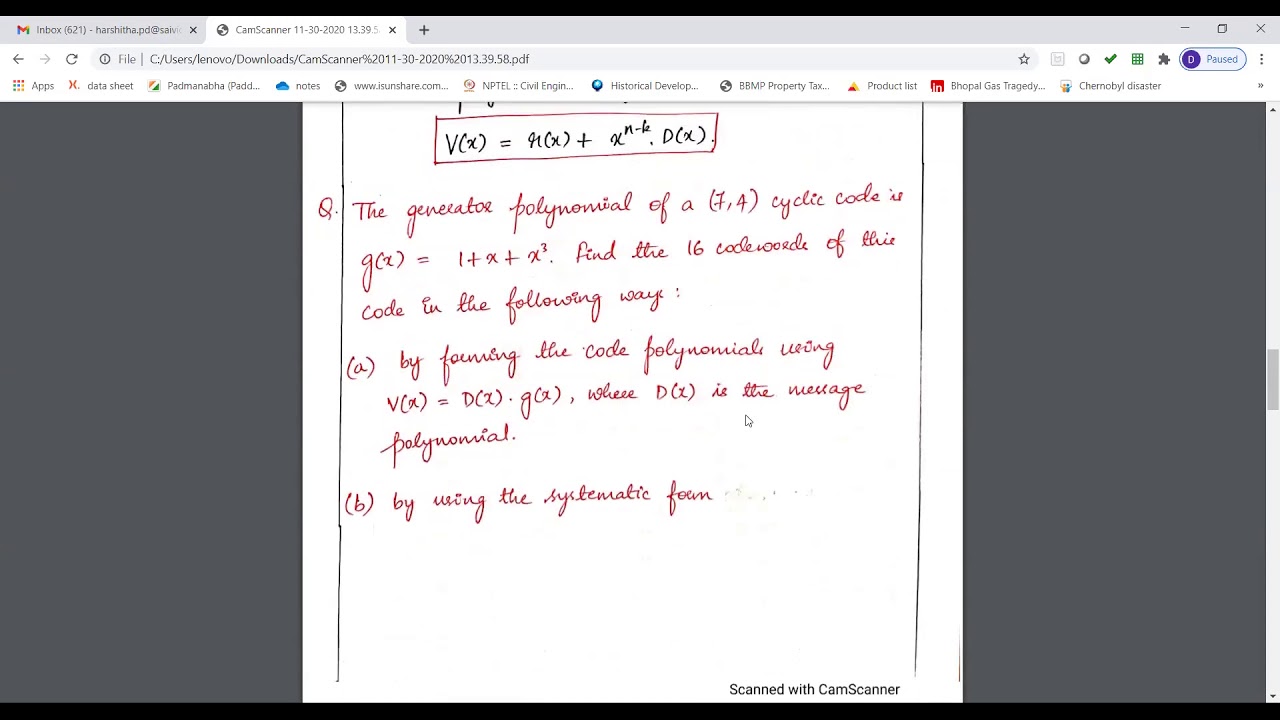 Inbox (621) - harshitha.pd@saivi
CamScanner 11-30-2020 13.39.5
File | C:/Users/lenovo/Downloads/CamScanner%2011-30-2020%2013.39.58.pdf
D Paused
Apps data sheet Padmanabha (Padd... notes www.isunshare.com... NPTEL :: Civil Engin... Historical Develop... BBMP Property Tax... Product list Bhopal Gas Tragedy... Chernobyl disaster »
V(x) = r(x) + x^{n-k}. D(x).
Q. The generator polynomial of a (7,4) cyclic code is
g(x) = 1+x+x³. Find the 16 codewords of this
code in the following ways:
(a) by forming the code polynomials using
V(x) = D(x) . g(x), where D(x) is the message
polynomial.
(b) by using the systematic form
Scanned with CamScanner